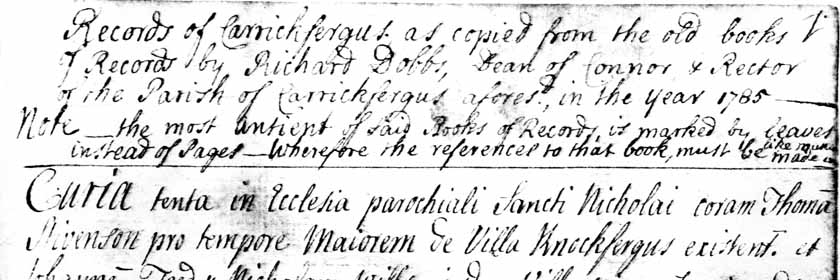 Records of Carrickfergus as copied from the old books
of Records by Richard Dobbs, Dean of Connor & Rector
of the Parish of Carrickfergus aforesd, in the year 1785
Note — the most antient of said Books of Records, is marked by leaves
instead of Pages — Wherefore the references to that book, must be made
like
Curia tenta in Ecclesia parochiali Sancti Nicholai coram Thoma
Stivenson pro tempore Maiorem de Villa Knockfergus existent. et